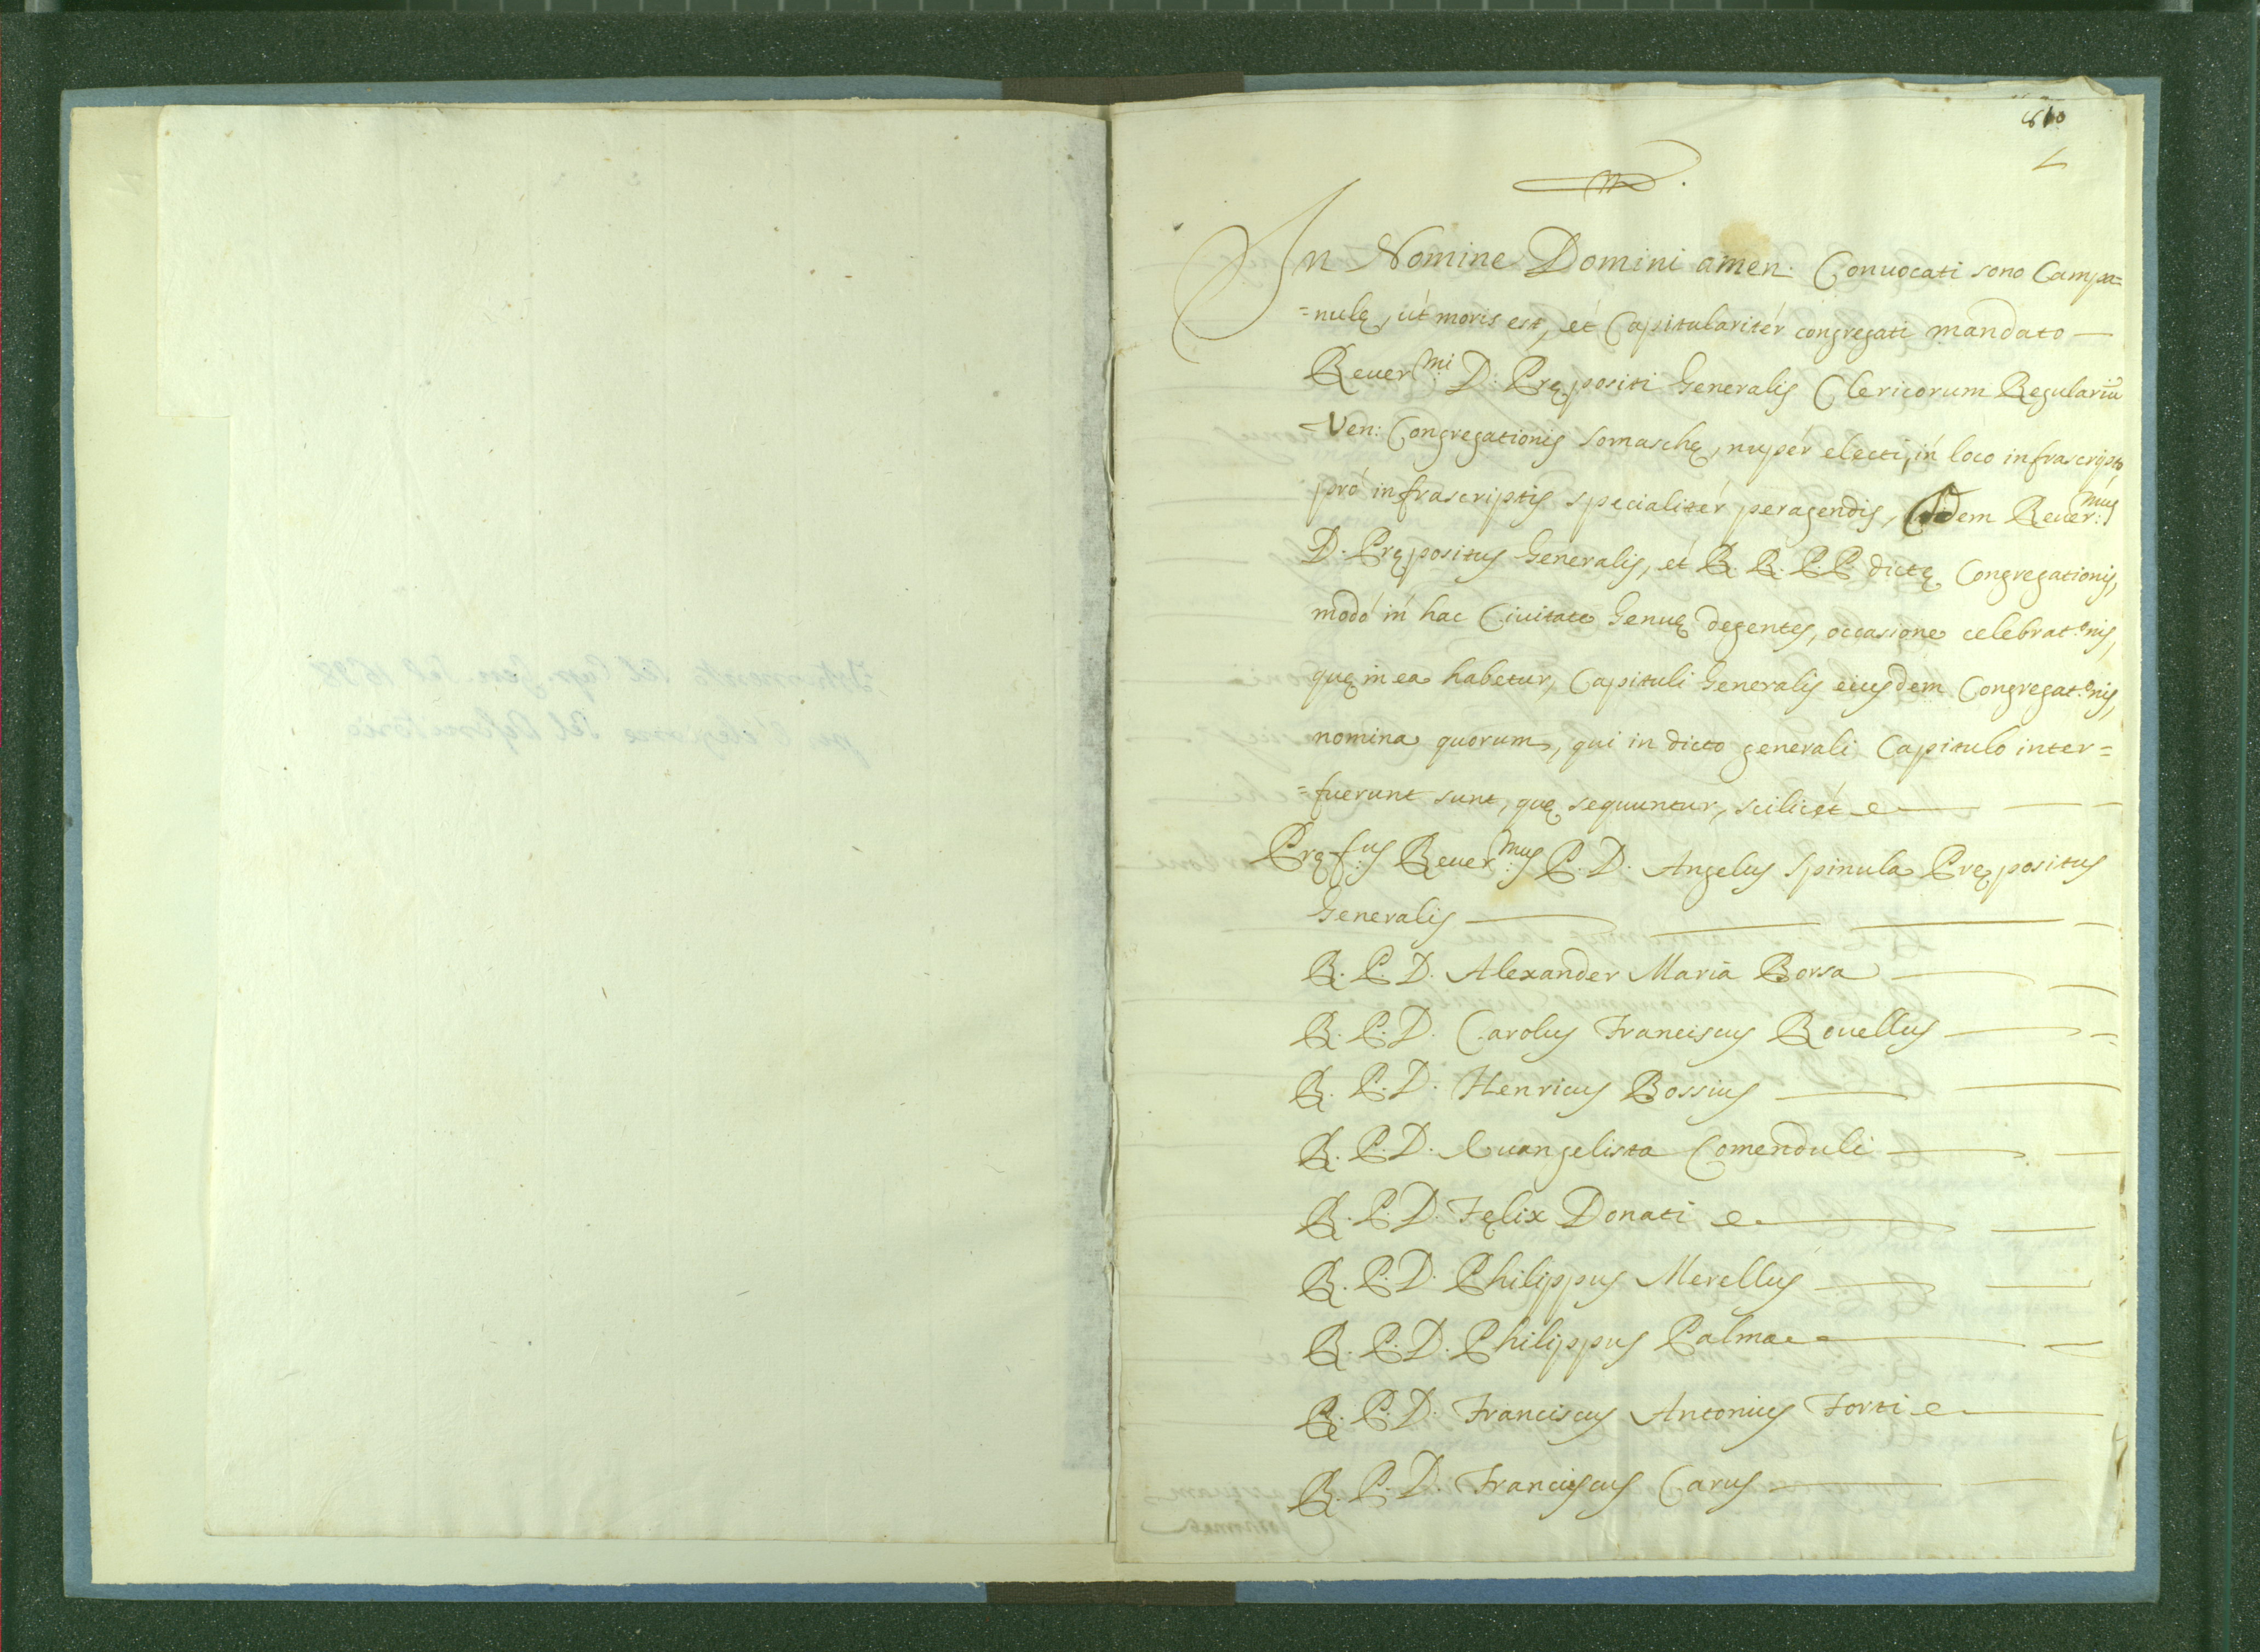 810
In Nomine Domini amen. Conuocati sono Campa=
=nulę, út moris est, et Capitularitér congregati mandato
Reuer.mi D. Prępositi Generalis Clericorum Regulariũ
Ven: Congregationis Somaschę, nupér electi, in loco infrascripto
pró infrascriptis specialitér peragendis, Idem Reuer:mus
D. Prępositus Generalis, et R. R. P.P. dictę Congregationis,
modó in hac Ciuitate Genuę degentes, occasione celebrat:nis,
quę in ea habetur, Capituli Generalis eiusdem Congregat:nis,
nomina quorum, qui in dicto generali Capitulo inter=
=fuerunt sunt, quę sequuntur, scilicét
Pręf:us Reuer:mus P. D. Angelus Spinula Prępositus
Generalis
R. P. D. Alexander Maria Borsa
R. P. D. Carolus Franciscus Rouellus
R. P. D. Henricus Bossius
R. P. D. Euangelista Comenduli
R. P. D. Fęlix Donati
R. P. D. Philippus Merellus
R. P. D. Philippus Palma
R. P. D. Franciscus Antonius Forti
R. P. D. Franciscus Carus